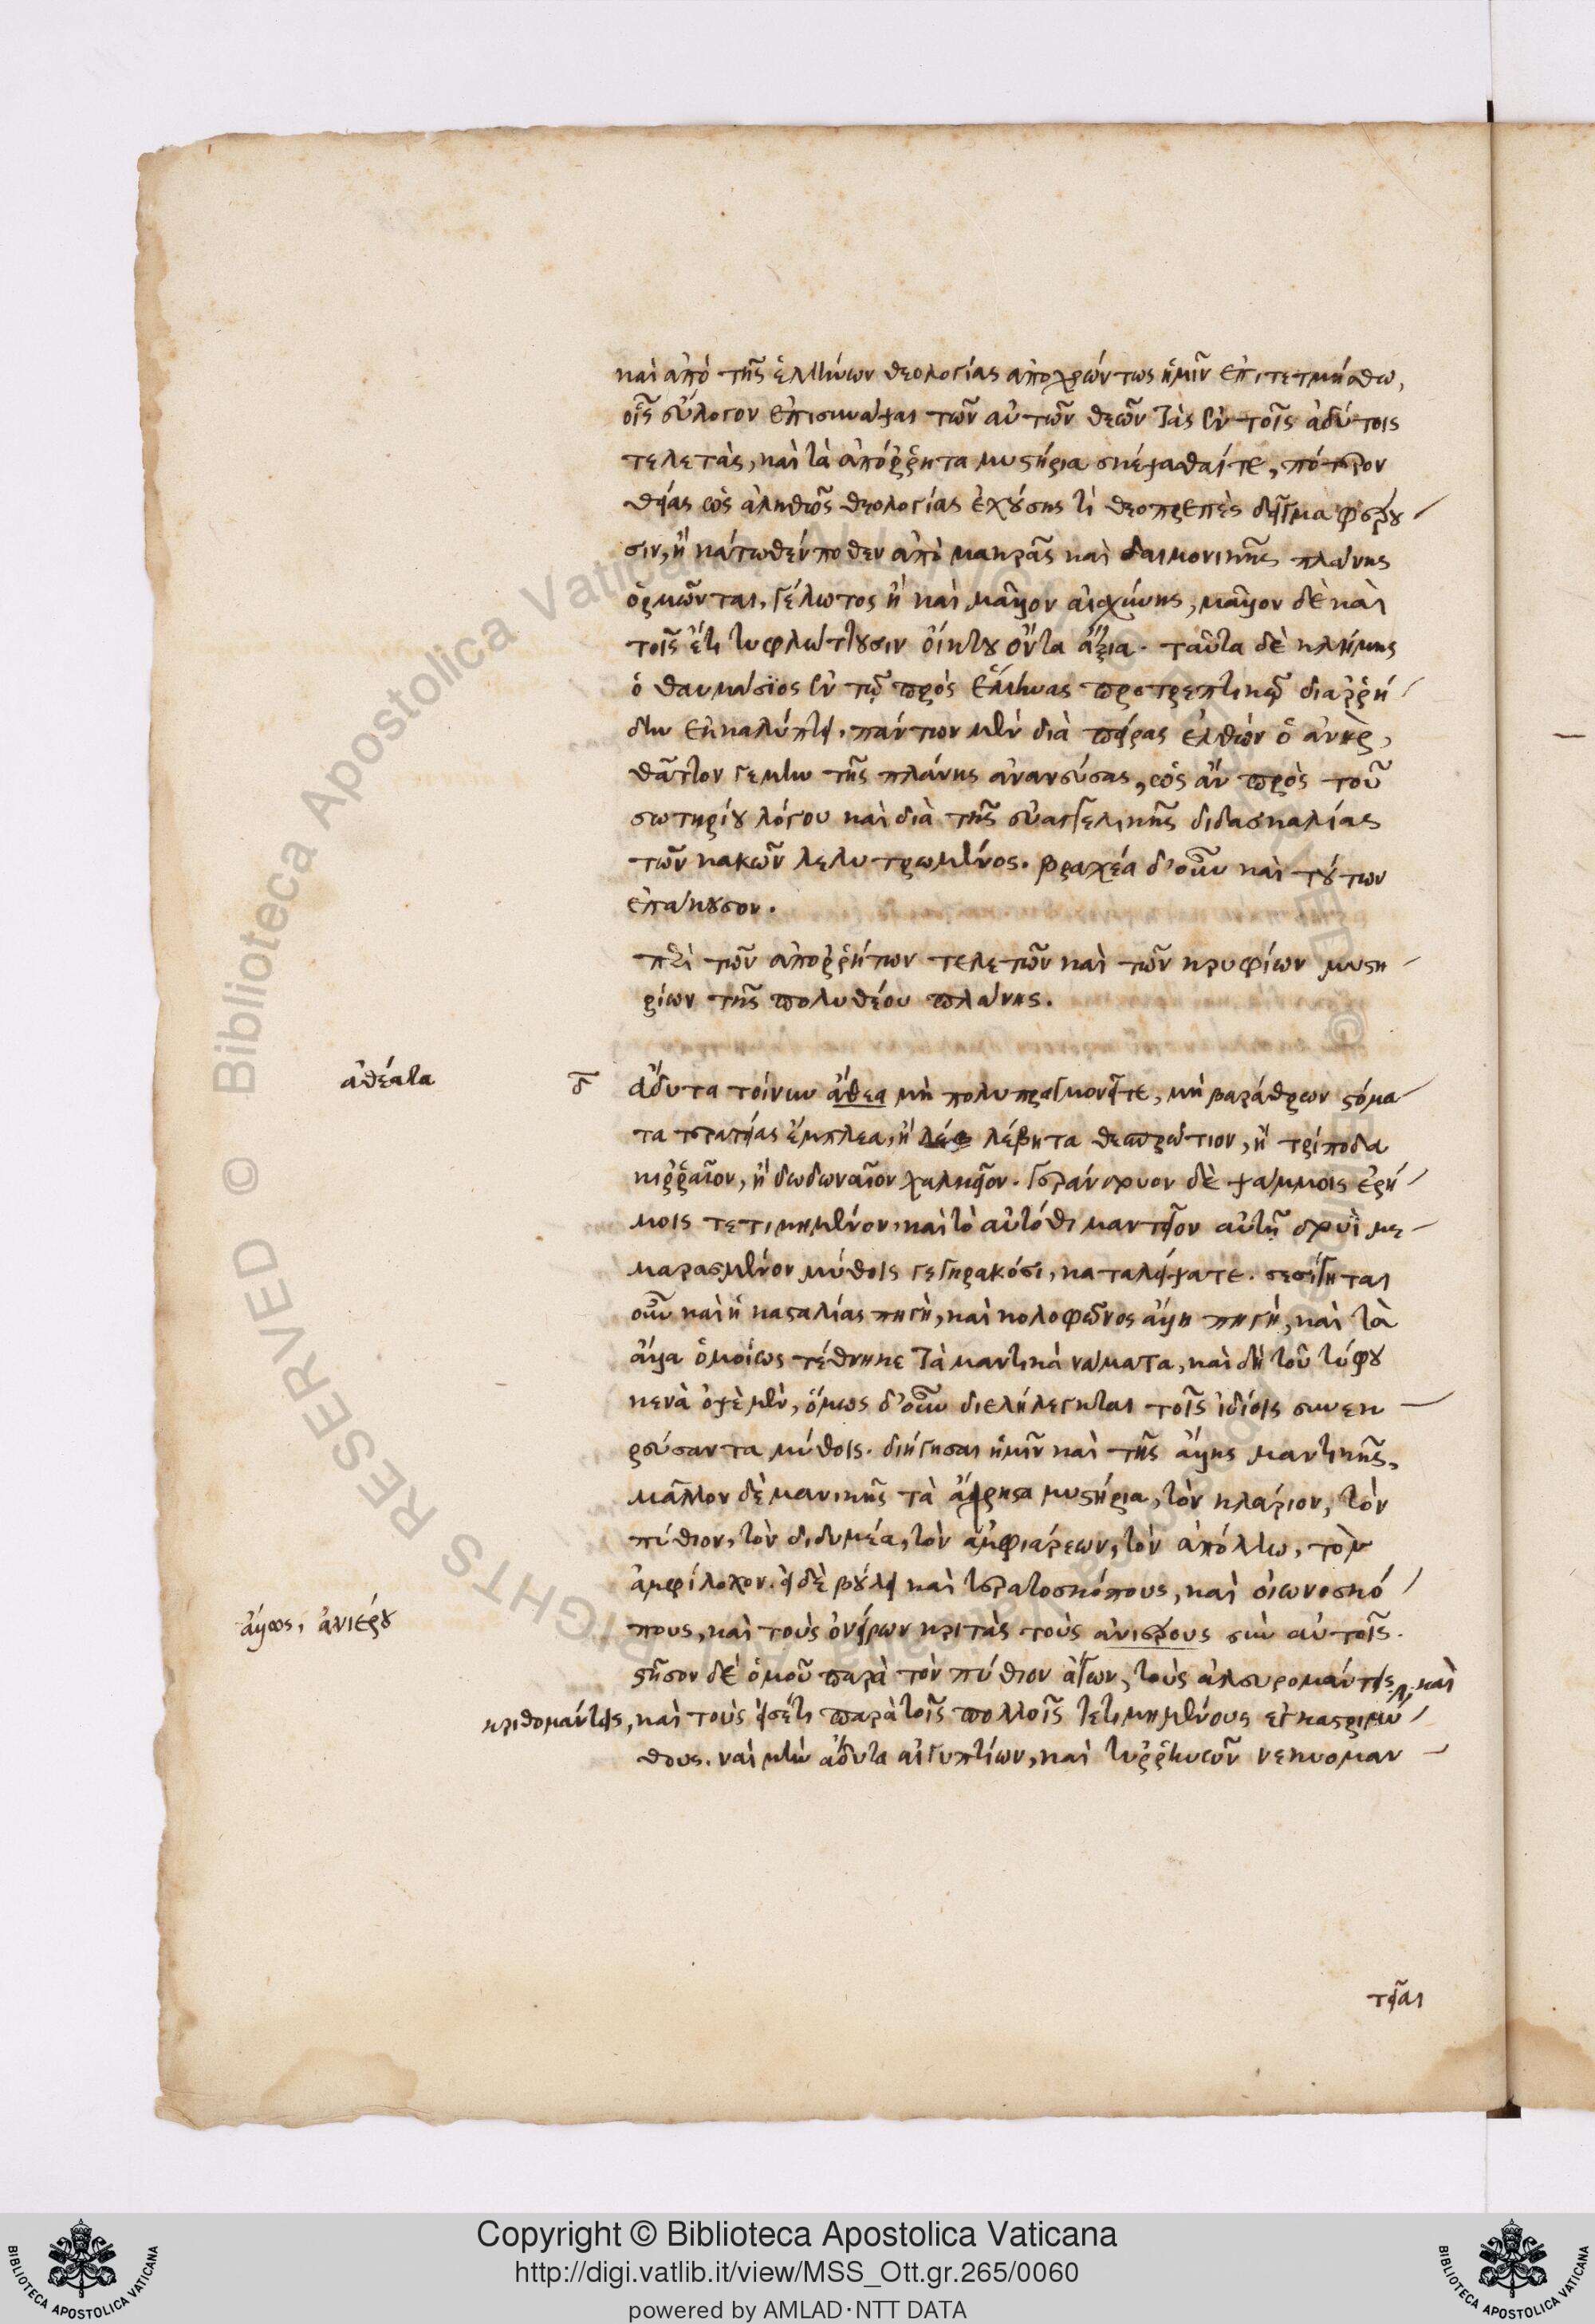 καὶ ἀπὸ τῆς ἑλλήνων θεολογίας ἀποχρώντως ἡμῖν ἐπιτετμήσθω,
οἷς εὔλογον ἐπισυνάψαι τῶν αὐτῶν θεῶν τὰς ἐν τοῖς ἀδύτοις
τελετὰς, καὶ τὰ ἀπόῤῥητα μυστήρια σκέψασθαί τε, πότερον
θείας ὡς ἀληθῶς θεολογίας ἐχούσης τὶ θεοπρεπὲς δεῖγμα φέρου
σιν, ἢ κάτωθέν ποθεν ἀπὸ μακρᾶς καὶ δαιμονικῆς πλάνης
ὁρμῶνται, γέλωτος ἢ καὶ μᾶλλον αἰσχύνης, μᾶλλον δὲ καὶ
τοῖς ἔτι τυφλώττουσιν οἴκτου ὄντα ἄξια. ταῦτα δὲ κλήμης
ὁ θαυμάσϊος ἐν τῷ πρὸς ἕλληνας προτρεπτικῷ διαῤῥή
δην ἐκκαλύπτει, πάντων μὲν διὰ πείρας ἐλθὼν ὁ ἀνὴρ,
θᾶττον γεμὴν τῆς πλάνης ἀνανεύσας, ὡς ἂν πρὸς τοῦ
σωτηρίου λόγου καὶ διὰ τῆς εὐαγγελικῆς διδασκαλίας
τῶν κακῶν λελυτρωμένος. βραχέα δ' οὖν καὶ τούτων
ἐπάκουσον.
περὶ τῶν ἀποῤῥήτων τελετῶν καὶ τῶν κρυφίων μυστη
ρίων τῆς πολυθέου πλάνης.
ἀθέατα
δ ἄδυτα τοίνυν ἄθεα μὴ πολυπραγμονεῖτε, μὴ βαράθρων στόμα
τα τερατείας ἔμπλεα, ἢ λέβητα θεσπρώτιον, ἢ τρίποδα
κιῤῥαῖον, ἢ δωδωναῖον χαλκεῖον. γεράνδρυον δὲ ψάμμοις ἐρή
μοις τετιμημένον, καὶ τὸ αὐτόθι μαντεῖον αὐτῇ δρυῒ με
μαρασμένον μύθοις γεγηρακόσι, καταλείψατε. σεσίγηται
οὖν καὶ ἡ κασταλίας πηγὴ, καὶ κολοφῶνος ἄλλη πηγὴ, καὶ τὰ
ἄλλα ὁμοίως τέθνηκε τὰ μαντικὰ νάματα, καὶ δὴ τοῦ τύφου
κενὰ ὀψὲ μὲν, ὅμως δ' οὖν διελήλεγκται τοῖς ἰδίοις συνεκ
ρεύσαντα μύθοις. διήγησαι ἡμῖν καὶ τῆς ἄλλης μαντικῆς,
μᾶλλον δὲ μανικῆς τὰ ἄχρηστα μυστήρια, τὸν κλάριον, τὸν
πύθιον, τὸν διδυμέα, τὸν ἀμφιάρεων, τὸν ἀπόλλω, τὸν
ἀμφίλοχον. εἰ δὲ βούλει καὶ τερατοσκόπους, καὶ οἰωνοσκό
ἄλλως, ἀνιέρου
πους, καὶ τοὺς ὀνείρων κριτὰς τοὺς ἀνιέρους σὺν αὐτοῖς.
στῆσον δὲ ὁμοῦ παρὰ τὸν πύθιον ἄγων, τοὺς ἀλευρομάντεις, καὶ
κριθομάντεις, καὶ τοὺς εἰσέτι παρὰ τοῖς πολλοῖς τετιμημένους ἐγκαστριμύ
θους. ναὶ μὴν ἄδυτα αἰγυπτίων, καὶ τυῤῥηνῶν νεκυομαν
τεῖαι
Copyright © Biblioteca Apostolica Vaticana
http://digi.vatlib.it/view/MSS_Ott.gr.265/0060
powered by AMLAD·NTT DATA